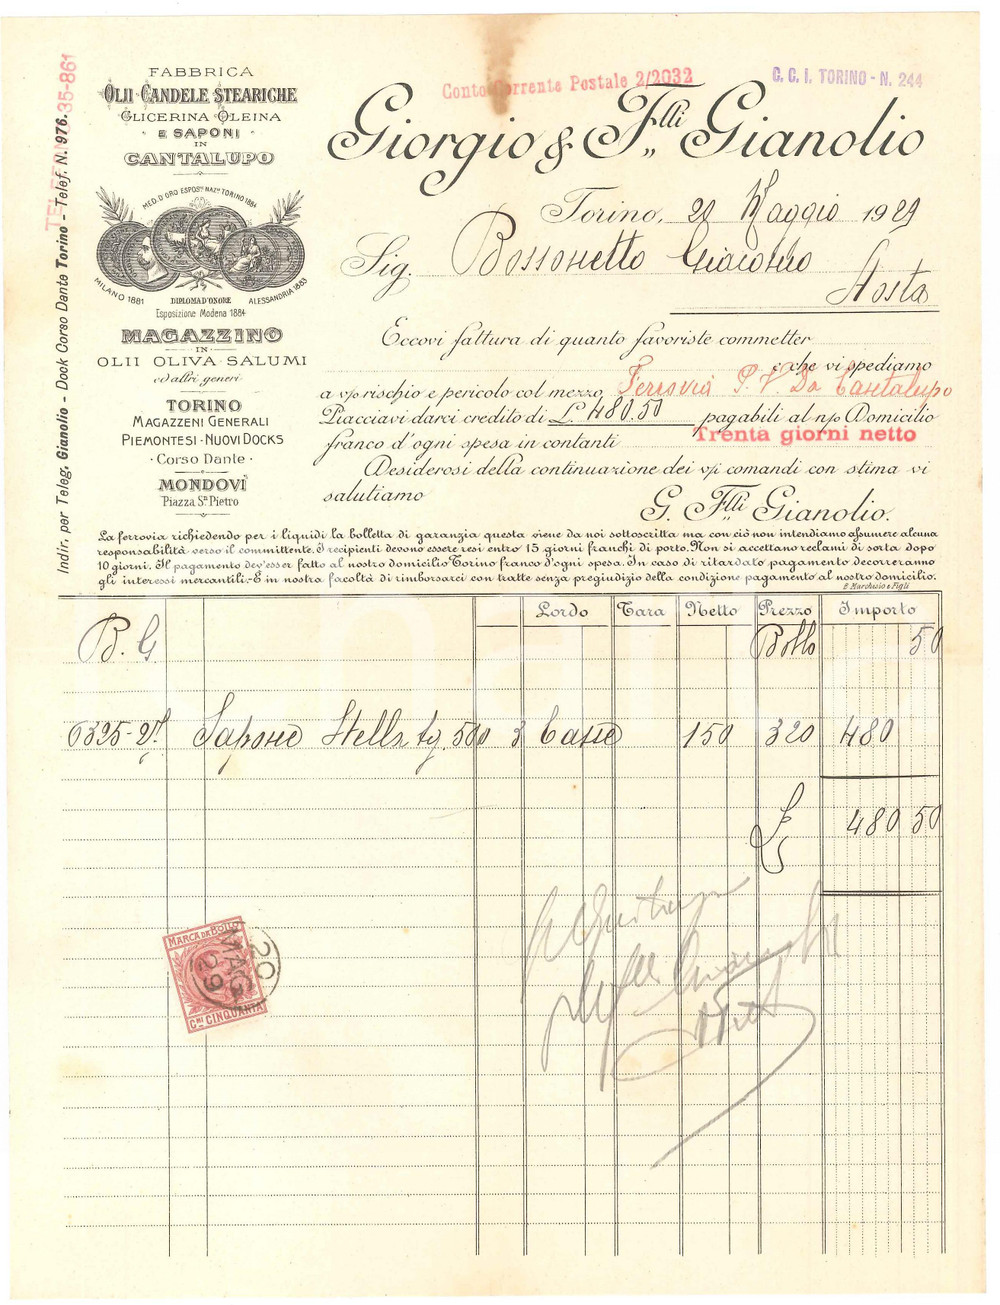 FABBRICA
OLII CANDELE STEARICHE
GLICERINA OLEINA
E SAPONI
IN
CANTALUPO
MED. D'ORO ESPOS.NE NAZ.LE TORINO 1884
MILANO 1881
DIPLOMA D'ONORE
Esposizione Modena 1884
ALESSANDRIA 1883
MAGAZZINO
IN
OLII OLIVA SALUMI
ed altri generi
TORINO
MAGAZZENI GENERALI
PIEMONTESI - NUOVI DOCKS
Corso Dante
MONDOVÌ
Piazza S.n Pietro
Indir. per Teleg. Gianolio - Dock Corso Dante Torino - Telef. N. 976.
35-861
Conto Corrente Postale 2/2032
C. C. I. TORINO - N. 244
Giorgio & F.lli Gianolio
Torino, 20 Maggio 1929
Sig. Bossonetto Giacomo
Aosta
Eccovi fattura di quanto favoriste commetter
e che vi spediamo
a v/o rischio e pericolo col mezzo Ferrovia P. V. Da Cantalupo
Piacciavi darci credito di L. 480.50 pagabili al n/o Domicilio
franco d'ogni spesa in contanti Trenta giorni netto
Desiderosi della continuazione dei v/i comandi con stima vi
salutiamo
G. F.lli Gianolio.
La ferrovia richiedendo per i liquidi la bolletta di garanzia questa viene da noi sottoscritta ma con ciò non intendiamo assumere alcuna
responsabilità verso il committente. I recipienti devono essere resi entro 15 giorni franchi di porto. Non si accettano reclami di sorta dopo
10 giorni. Il pagamento dev'esser fatto al nostro domicilio Torino franco d'ogni spesa. In caso di ritardato pagamento decorreranno
gli interessi mercantili. È in nostra facoltà di rimborsarci con tratte senza pregiudizio della condizione pagamento al nostro domicilio.
F. Marchisio e Figli
Lordo Tara Netto Prezzo Importo
B. G. Bollo 50
6325-27 Sapone Stella tg. 500 3 Casse 150 320 480
£ 480 50
MARCA DA BOLLO
20 MAG 29
C.MI CINQUANTA